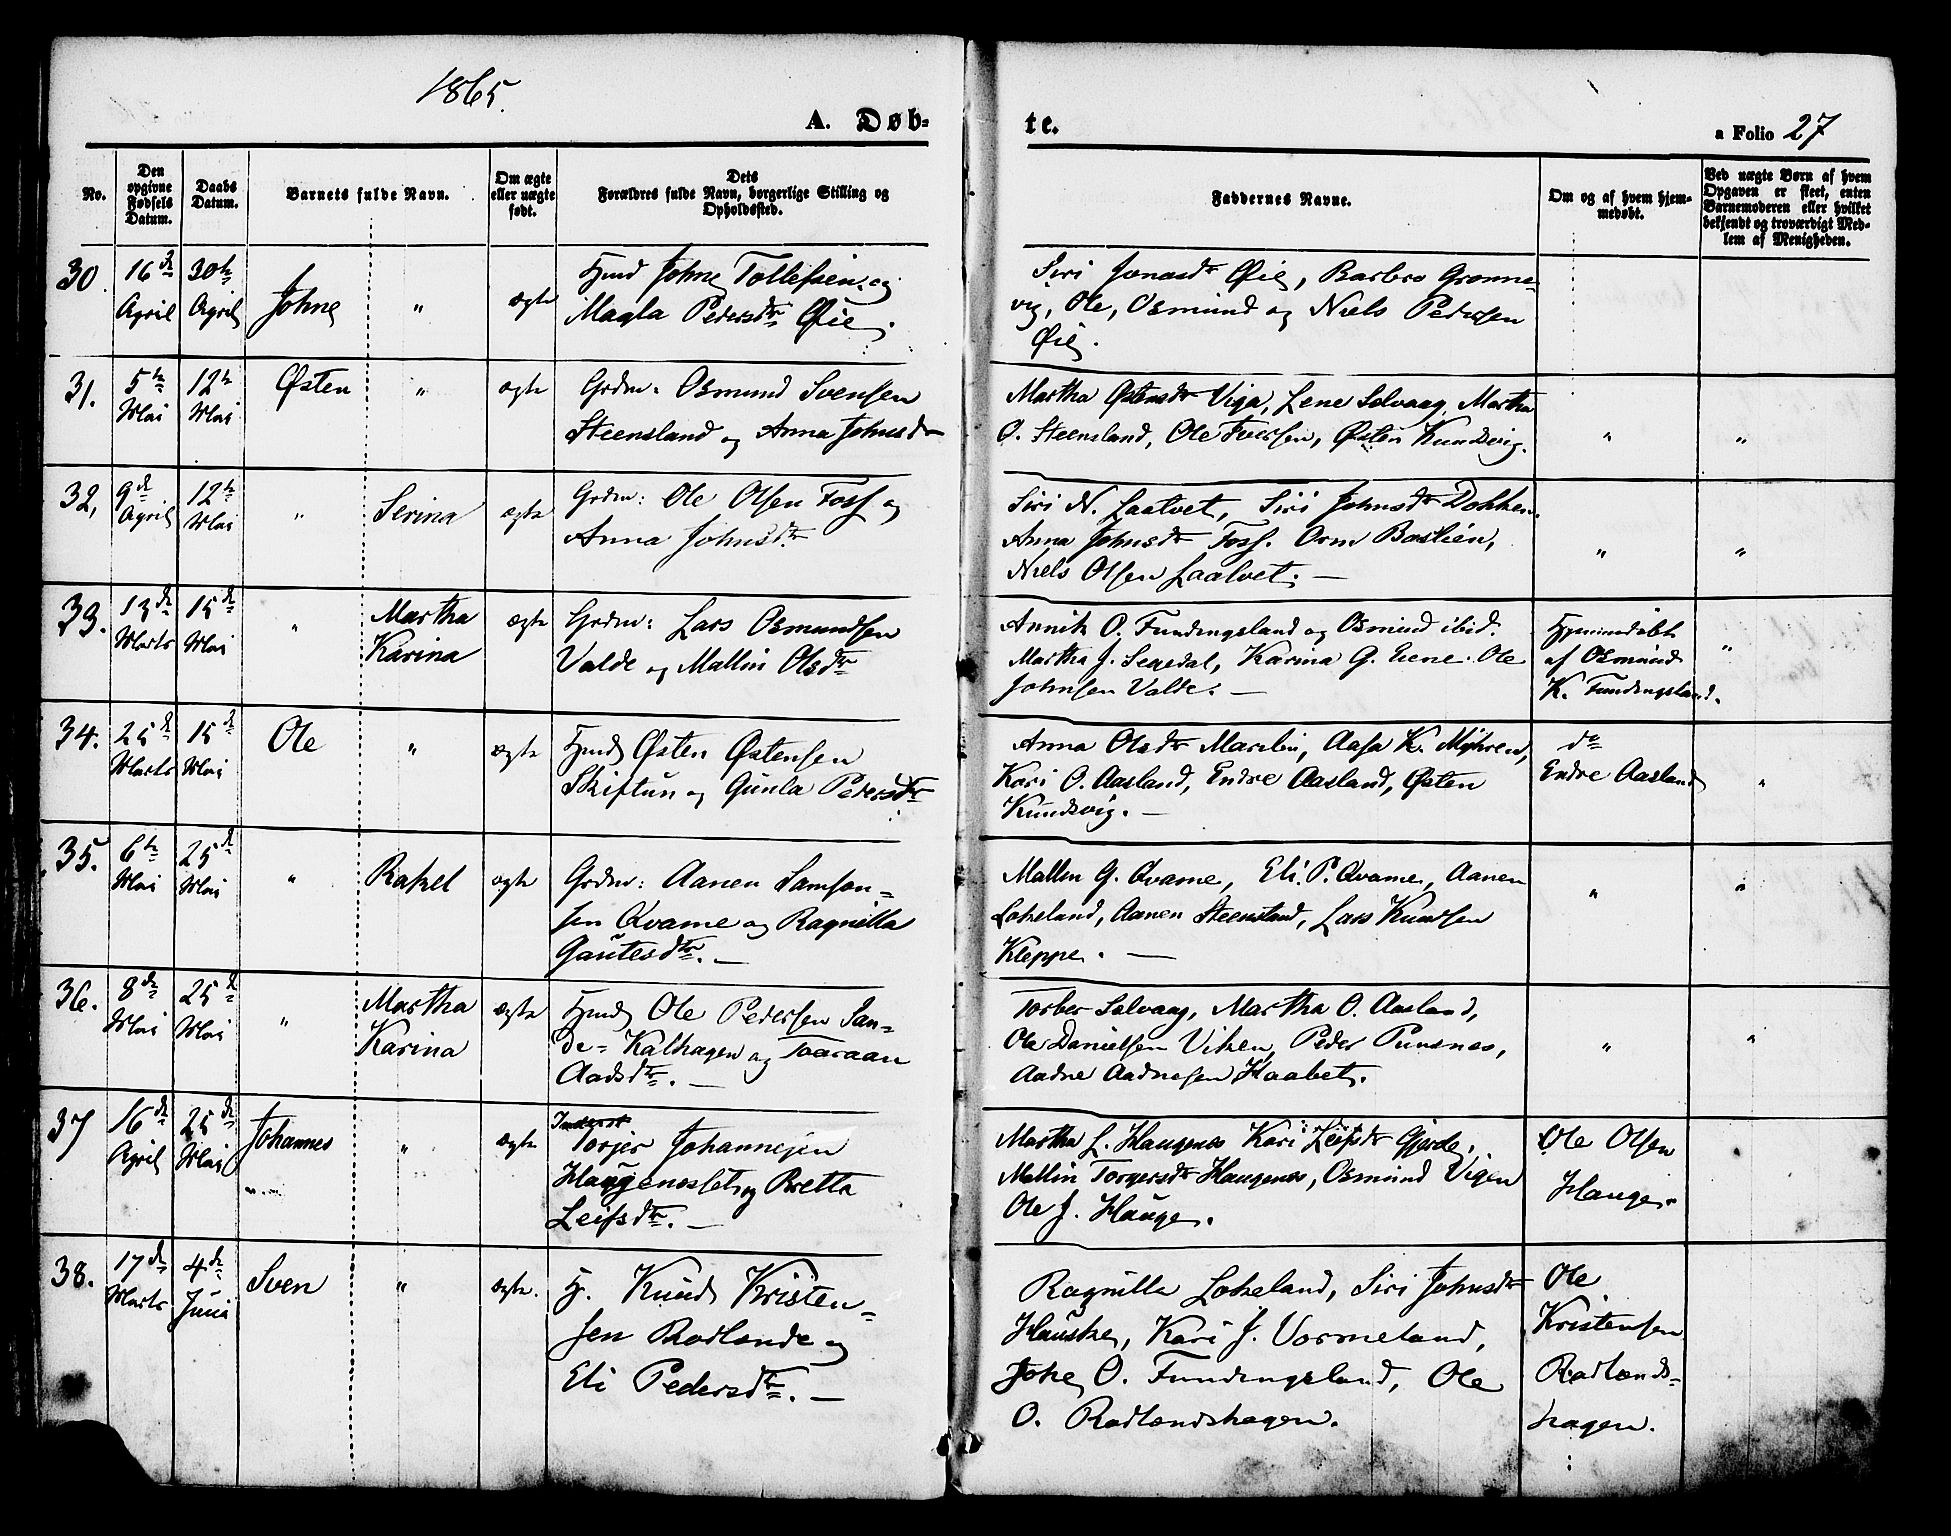 1865.
A. Døb-
te.
a Folio 27
No.
Den
opgivne
Fødsels
Datum.
Daabs
Datum.
Barnets fulde Navn.
Om ægte
eller uægte
født.
Dets
Forældres fulde Navn, borgerlige Stilling og
Opholdssted.
Faddernes Navne.
Om og af hvem hjem-
medøbt.
Ved uægte Børn af hvem
Opgaven er skeet, enten
Barnemoderen eller hvilket
bekjendt og troværdigt Med-
lem af Menigheden.
30 16de April 30te April Johne " ægte
Hmd Johne Tollefsen og
Magla Pedersdtr Øie.
Siri Jonasdtr Øie, Barbro Grønne-
vig, Ole, Osmund og Niels Pedersen
Øie.
31. 5te Mai 12te Mai Østen " ægte
Grdm: Osmund Svensen
Steensland og Anna Johnsdtr
Martha Østensdtr Viga, Lene Solvaag, Martha
O. Steensland, Ole Iversen, Østen Kundsvig.
" "
32, 9de April 12te Mai " Serina ægte
Grdm: Ole Olsen Foss og
Anna Johnsdtr
Siri N. Laalvet, Siri Johnsdtr Dokken.
Anna Johnsdtr Foss. Orm Bastlien,
Niels Olsen Laalvet. —
" "
33. 13de Marts 15de Mai " Martha Karina ægte
Grdm: Lars Osmundsen
Valde og Mallin Olsdtr
Annik O. Fundingsland og Osmund ibid.
Martha J. Segedal, Karina G. Eene. Ole
Johnsen Valde. —
Hjemmedøbt
af Osmund
K. Fundingsland.
"
34. 25de Marts 15de Mai Ole " ægte
Hmd Østen Østensen
Skiftun og Gunla Pedersdtr
Anna Olsdtr Marvlin, Aasa K. Myhren,
Kari O. Aasland, Endre Aasland, Østen
Kundsvig. —
do
Endre Aasland
"
35. 6te Mai 25de Mai " Rakel ægte
Grdm: Aanen Samson-
sen Qvame og Ragnilla
Gautesdtr. —
Mallin G. Qvame, Eli. P. Qvame, Aanen
Lokeland, Aanen Steensland, Lars Knudsen
Kleppe. —
" "
36. 8de Mai 25de Mai " Martha Karina ægte
Hmd Ole Pedersen San-
de- Kalhagen og Taaraan
Aadsdtr. —
Torber Solvaag, Martha O. Aasland,
Ole Danielsen Viken, Peder Punsnes,
Aadne Aadnesen Kaabet.
" "
37 16de April 25de Mai Johannes " ægte
Inderst
Torjer Johannesen
Haugenesset og Bretta
Leifsdtr. —
Martha L. Haugenes Kari Leifsdtr Gjerde,
Mallin Torgersdtr Haugenes, Osmund Vigen
Ole J. Hauge.
Ole Olsen
Hauge.
38. 17de Marts 4de Juni Sven " ægte.
H. Knud Kristen-
sen Rødlande og
Eli Pedersdtr. —
Ragnilla Lokeland, Siri Johnsdtr
Hauske, Kari J. Vormeland,
Johe O. Fundingsland, Ole
O. Rødlandshagen.
Ole
Kristensen
Rødlands-
hagen.